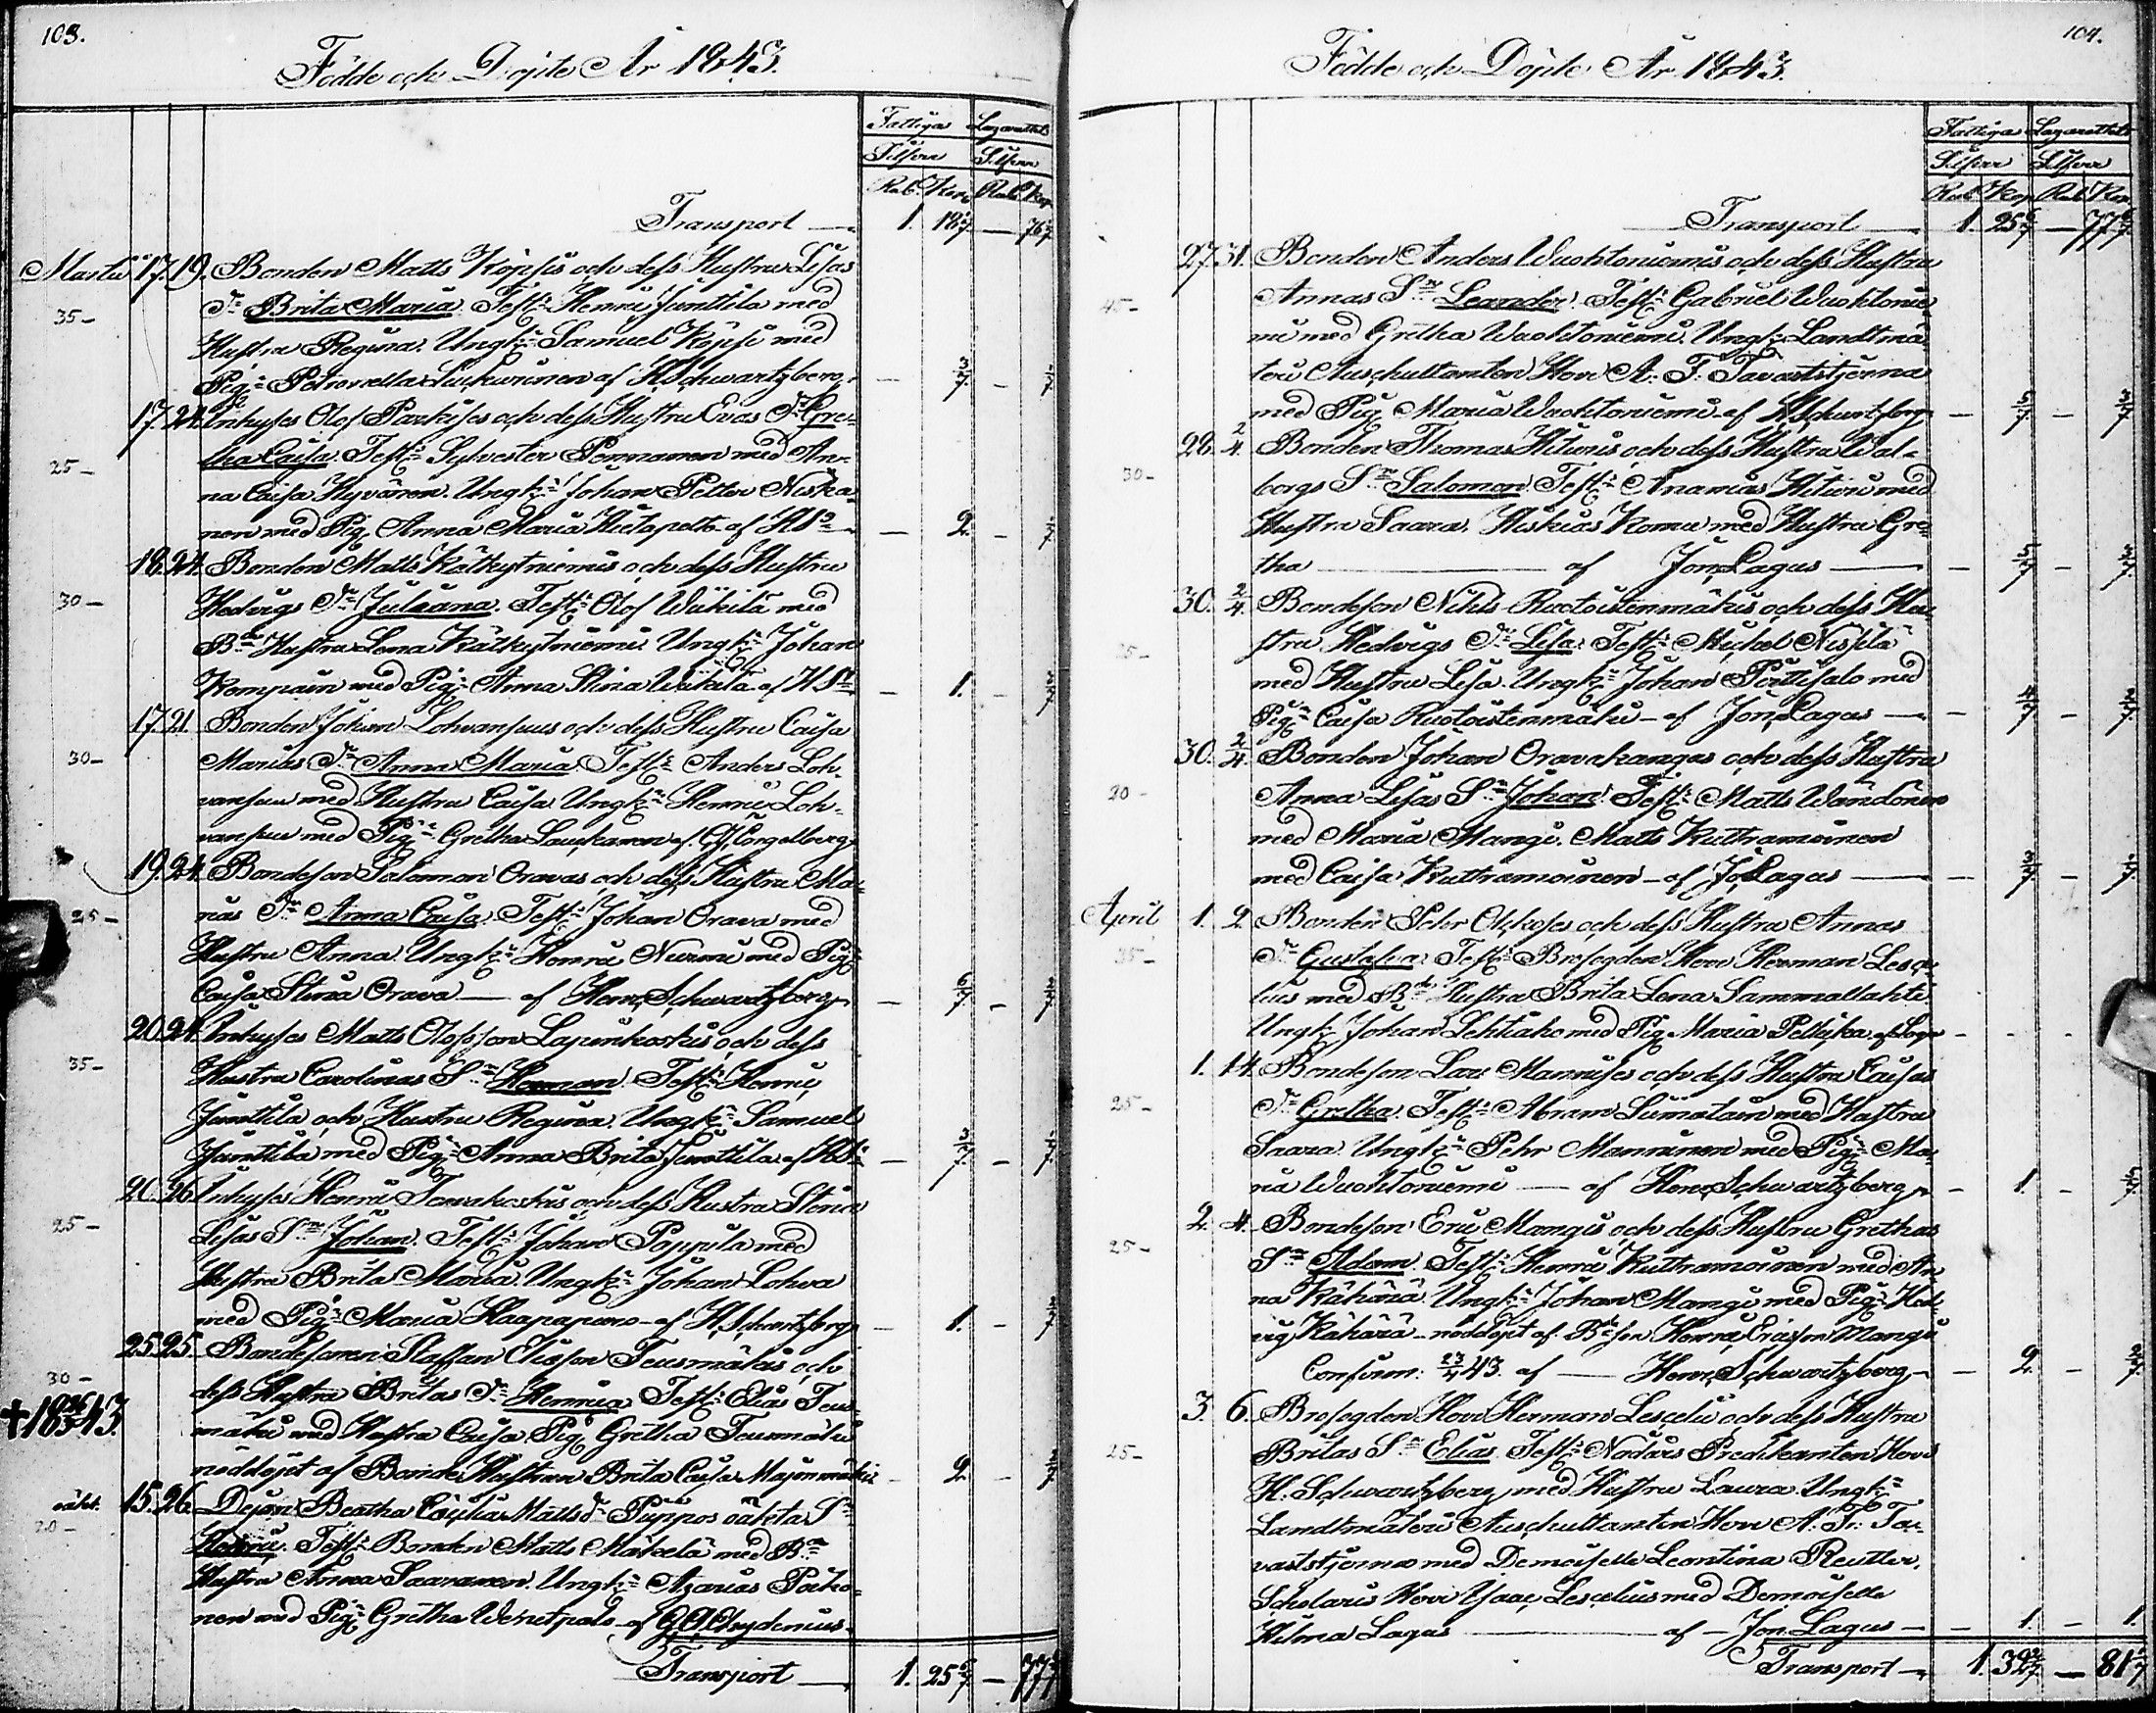 103.
Födde och Döpte År 1843.
Fattiga Lazarettets
Silfver Silfver
Rub. Kop. Rub. Kop.
Transport — 1. 18 — 76
Martii 17. 19. Bonden Matts Köpsis och dess Hustrus Lisas
35 — Dr Brita Maria. Test: Henric Junttila med
Hustru Regina. Ungk: Samuel Köpsi med
Pig: Petronella af H Schwartzberg. — 3/7 —
17. 24. Inhyses Olof Parkises och dess Hustru Evas Dr Gre-
25 — tha Caisa. Test: Sylvester Pennanen med An-
na Caisa Hyvären. Ungk: Johan Petter Niska-
nen med Pig. Anna Maria af HS — 2. —
18. 24. Bonden Matts Kätkytniemis och dess Hustru
30 — Hedvigs Dr Juliana. Test: Olof Wiikilä med
Bde Hustru Lena Kätkytniemi. Ungk: Johan
Kempain med Pig: Anna Stina Wiikilä af HS — 1. —
17. 21. Bonden Johan Lohvansuus och dess Hustru Caisa
30 — Marias Dr Anna Maria. Test: Anders Loh-
vansuu med Hustru Caisa. Ungk: Henric Loh-
vansuu med Pig: Gretha Laukkanen af Engelberg
19. 24. Bondeson Salomon Oravas och dess Hustru Ma-
25 — rias Dr Anna Caisa. Test: Johan Orava med
Hustru Anna. Ungk: Henric Nurmi med Pig:
Caisa Stina Orava — af Henr. Schwartzberg. — 6/7 —
20. 24. Inhyses Matts Olofsson Lapinkoskis och dess
35 — Hustru Carolinas Sn Herman. Test: Henric
Junttila och Hustru Regina. Ungk: Samuel
Junttila med Pig: Anna Brita Junttila af HS — 3/7 —
20. 26. Inhyses Henric Tervakoskis och dess Hustru Stina
25 — Lisas Sn Johan. Test: Johan Poppila med
Hustru Brita Maria. Ungk: Johan Lohva
med Pig: Maria Haapapuro af H. Schwartzberg — 1. —
25. 25. Bondesonen Staffan Eliasson Teusmäkis och
30 — dess Hustru Britas Dr Henrica. Test: Elias Teus-
† 1843. mäki med Hustru Caisa. Pig. Gretha Teusmäki
nöddöpt af Bonde Hustrun Brita Caisa — 2. —
oäkt. 15. 26. Dejan Beatha Cecilia Mattsdr Piippos oäkta Sn
20 — Henric. Test: Bonden Matts Mäkelä med Bde
Hustru Anna Saaranen. Ungk: Azarias Pöhö-
nen med Pig: Gretha af Chydenius.
Transport — 1. 25 6/7 — 77
104.
Födde och Döpte År 1843.
Fattiga Lazarettets
Silfver Silfver
Rub. Kop. Rub. Kop.
Transport — 1. 25 6/7 — 77
27. 31. Bonden Anders Wuohtoniemis och dess Hustru
45 — Annas Sn Leander. Test: Gabriel Wuohtonie-
mi med Gretha Wuohtoniemi. Ungk: Landtmä-
teri Auscultanten Herr A. F. Tavaststjerna
med Pig. Maria Wuohtoniemi af H. Schwartzberg — —
28. 2/4. Bonden Thomas Hituris och dess Hustru Wal-
30 — borgs Sn Salomon. Test: Ananias Hituri med
Hustru Saara. Hiskias Komu med Hustru Gre-
tha — af Jon. Lagus — — —
30. 2/4. Bondeson Nihls Ruotoistenmäkis och dess Hu-
25 — stru Hedvigs Dr Lisa. Test: Michel Nissilä
med Hustru Lisa. Ungk: Johan Pöttisalo med
Pig: Caisa Ruotoistenmäki — af Jon. Lagus — — —
30. 2/4. Bonden Johan Oravakangas och dess Hustru
20 — Anna Lisas Sn Johan. Test: Matts Wändönen
med Maria Mangi. Matts Kuttramoinen
med Caisa Kuttramoinen — af J. Lagus — — —
April 1. 2. Bonden Pehr och dess Hustru Annas
35 — Dr Gustafva. Test: Brofogden Herr Herman Lesce-
lius med Bde Hustru Brita Lena Sammallahti.
Ungk: Johan Lehtiaho med Pig. Maria af Lagus — — —
1. 14. Bondeson Lars Mannises och dess Hustru Caisas
25 — Dr Gretha. Test: Abram Siimatain med Hustru
Saara. Ungk: Pehr Manninen med Pig: Ma-
ria Wuohtoniemi — af Henr. Schwartzberg. — 1. —
2. 4. Bondeson Eric Mangis och dess Hustru Grethas
25 — Sn Adam. Test: Henric Kuttramoinen med An-
na Kähärä. Ungk: Johan Mangi med Pig: Hed-
vig Kähärä — nöddöpt af Bdeson Henric Ericsson Mangi
Confirm: 23/4 43. af — Henr. Schwartzberg. — 2. —
3. 6. Brofogden Herr Herman Lescelii och dess Hustru
25 — Britas Sn Elias. Test: Nödårs Predikanten Herr
H. Schwartzberg med Hustru Laura. Ungk:
Landtmäteri Auscultanten Herr A. Fr. Ta-
vaststjerna med Demoiselle Leontina Reutter.
Scholaris Herr Isaac Lescelius med Demoiselle
Hilma Lagus — af — Jon. Lagus — — 1. — 1.
Transport — 1. 32 — 81